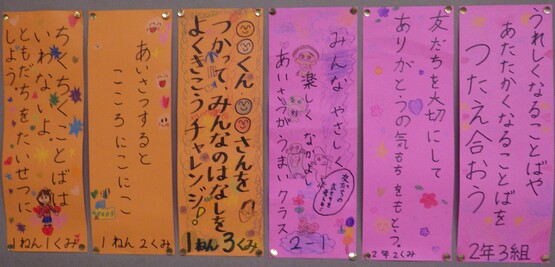 うれしくなることばや
あたたかくなることばを
つたえ合おう
2年3組
友だちを大切にして
ありがとうの気もちをもとう。
2年2くみ
みんなやさしく
楽しくなかよく
あいさつがうまいクラス
2-1
くん さんを
つかって みんなのはなしを
よくきこうチャレンジ♪
1ねん3くみ
あいさつすると
こころにこにこ
1ねん2くみ
ちくちくことばは
いわないよ
ともだちをたいせつに
しよう
1ねん1くみ